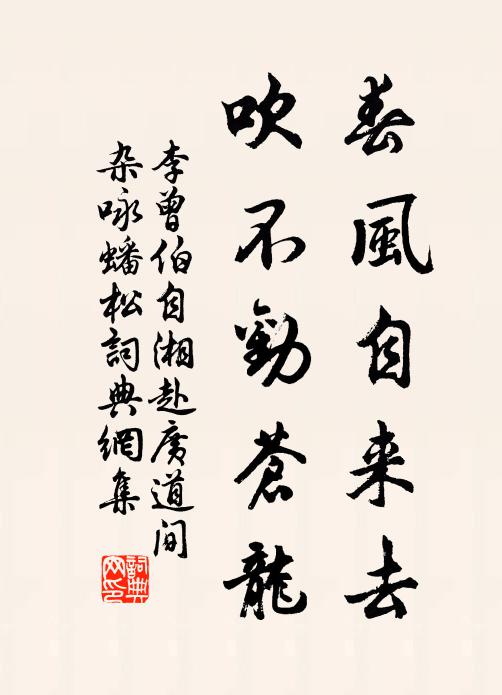 春風自来去
吹不動蒼龍
李曾伯自湘赴廣道间
杂咏蟠松詞典網集
詞典
网印